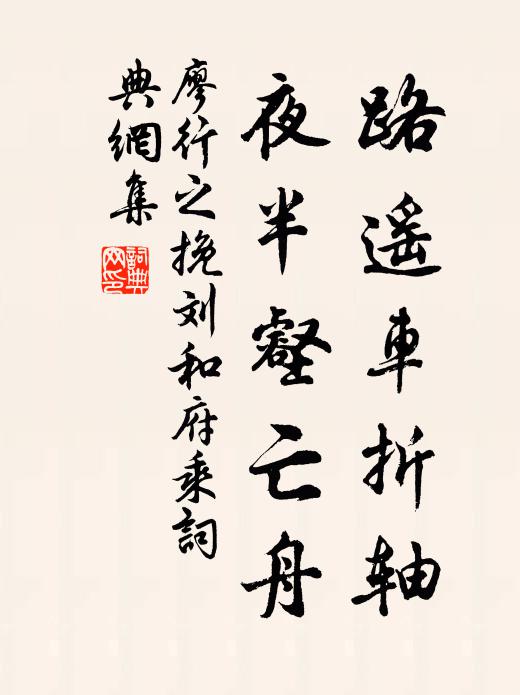 路遥車折轴
夜半壑亡舟
廖行之挽刘和府乘詞
典網集
詞典
网印